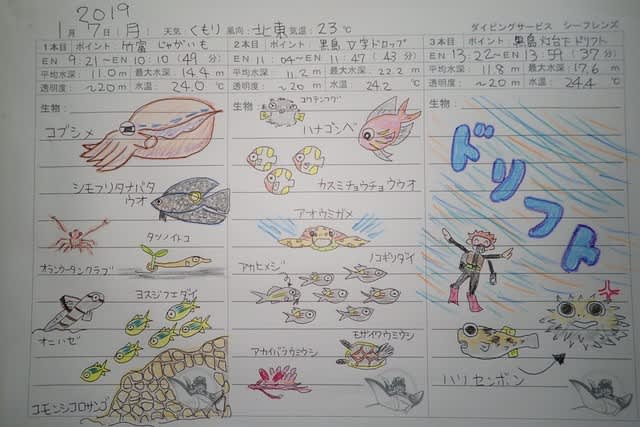 2019
1月 7日(月) 天気 くもり 風向: 北東 気温: 23 ℃
ダイビングサービス シーフレンズ
1本目 ポイント: 竹富 じゃがいも
EN 9:21 ~EN 10:10 (49分)
平均水深: 11.0m 最大水深: 14.4m
透明度: ~20m 水温: 24.0 ℃
生物:
コブシメ
シモフリタナバタウオ
タツノイトコ
オランウータンクラブ
ヨスジフエダイ
オニハゼ
コモンシコロサンゴ
2本目 ポイント: 黒島 V字ドロップ
EN 11:04 ~EN 11:47 (43分)
平均水深: 11.2m 最大水深: 22.2m
透明度: ~20m 水温: 24.2 ℃
生物:
コクテンフグ
ハナゴンベ
カスミチョウチョウウオ
アオウミガメ
アカヒメジ
ノコギリダイ
モザイクウミウシ
アカイバラウミウシ
3本目 ポイント: 黒島 灯台下 ドリフト
EN 13:22 ~EN 13:59 (37分)
平均水深: 11.8m 最大水深: 17.6m
透明度: ~20m 水温: 24.4 ℃
生物:
ドリフト
ハリセンボン